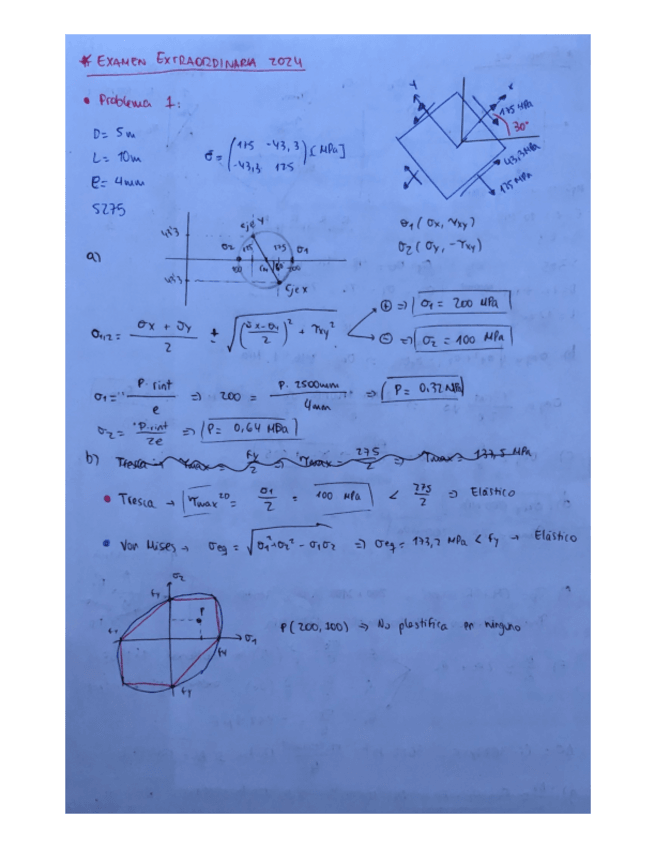 * EXAMEN EXTRAORDINARIA 2024
• Problema 1:
D= 5m
L= 10m
e= 4mm
S275
σ̄ = (175 -43,3
-43,3 125) [MPa]
Y
x
175 MPa
30°
43,3MPa
125 MPa
σ1 (σx, τxy)
σ2 (σy, -τxy)
a)
43'3
43'3
eje Y
σ2
125
175
σ1
100
200
eje x
σ1/2 = σx + σy / 2 ± √((σx-σy / 2)² + τxy²)
⊕ => σ1 = 200 MPa
⊖ => σ2 = 100 MPa
σ1 = "P. rint / e => 200 = P. 2500mm / 4mm" => P= 0,32 MPa
σ2 = "P.rint / 2e => P= 0,64 MPa
b) Tresca → τmax = fy / 2 => τmax = 275 / 2 => τmax = 137,5 MPa
• Tresca → τmax 2D = σ1 / 2 = 100 MPa < 275 / 2 => Elástico
• Von Mises → σeq = √(σ1²+σ2² - σ1σ2) => σeq = 173,2 MPa < fy → Elástico
σ2
fy
P
fy
σ1
fy
fy
P(200,100) => No plastifica en ninguno